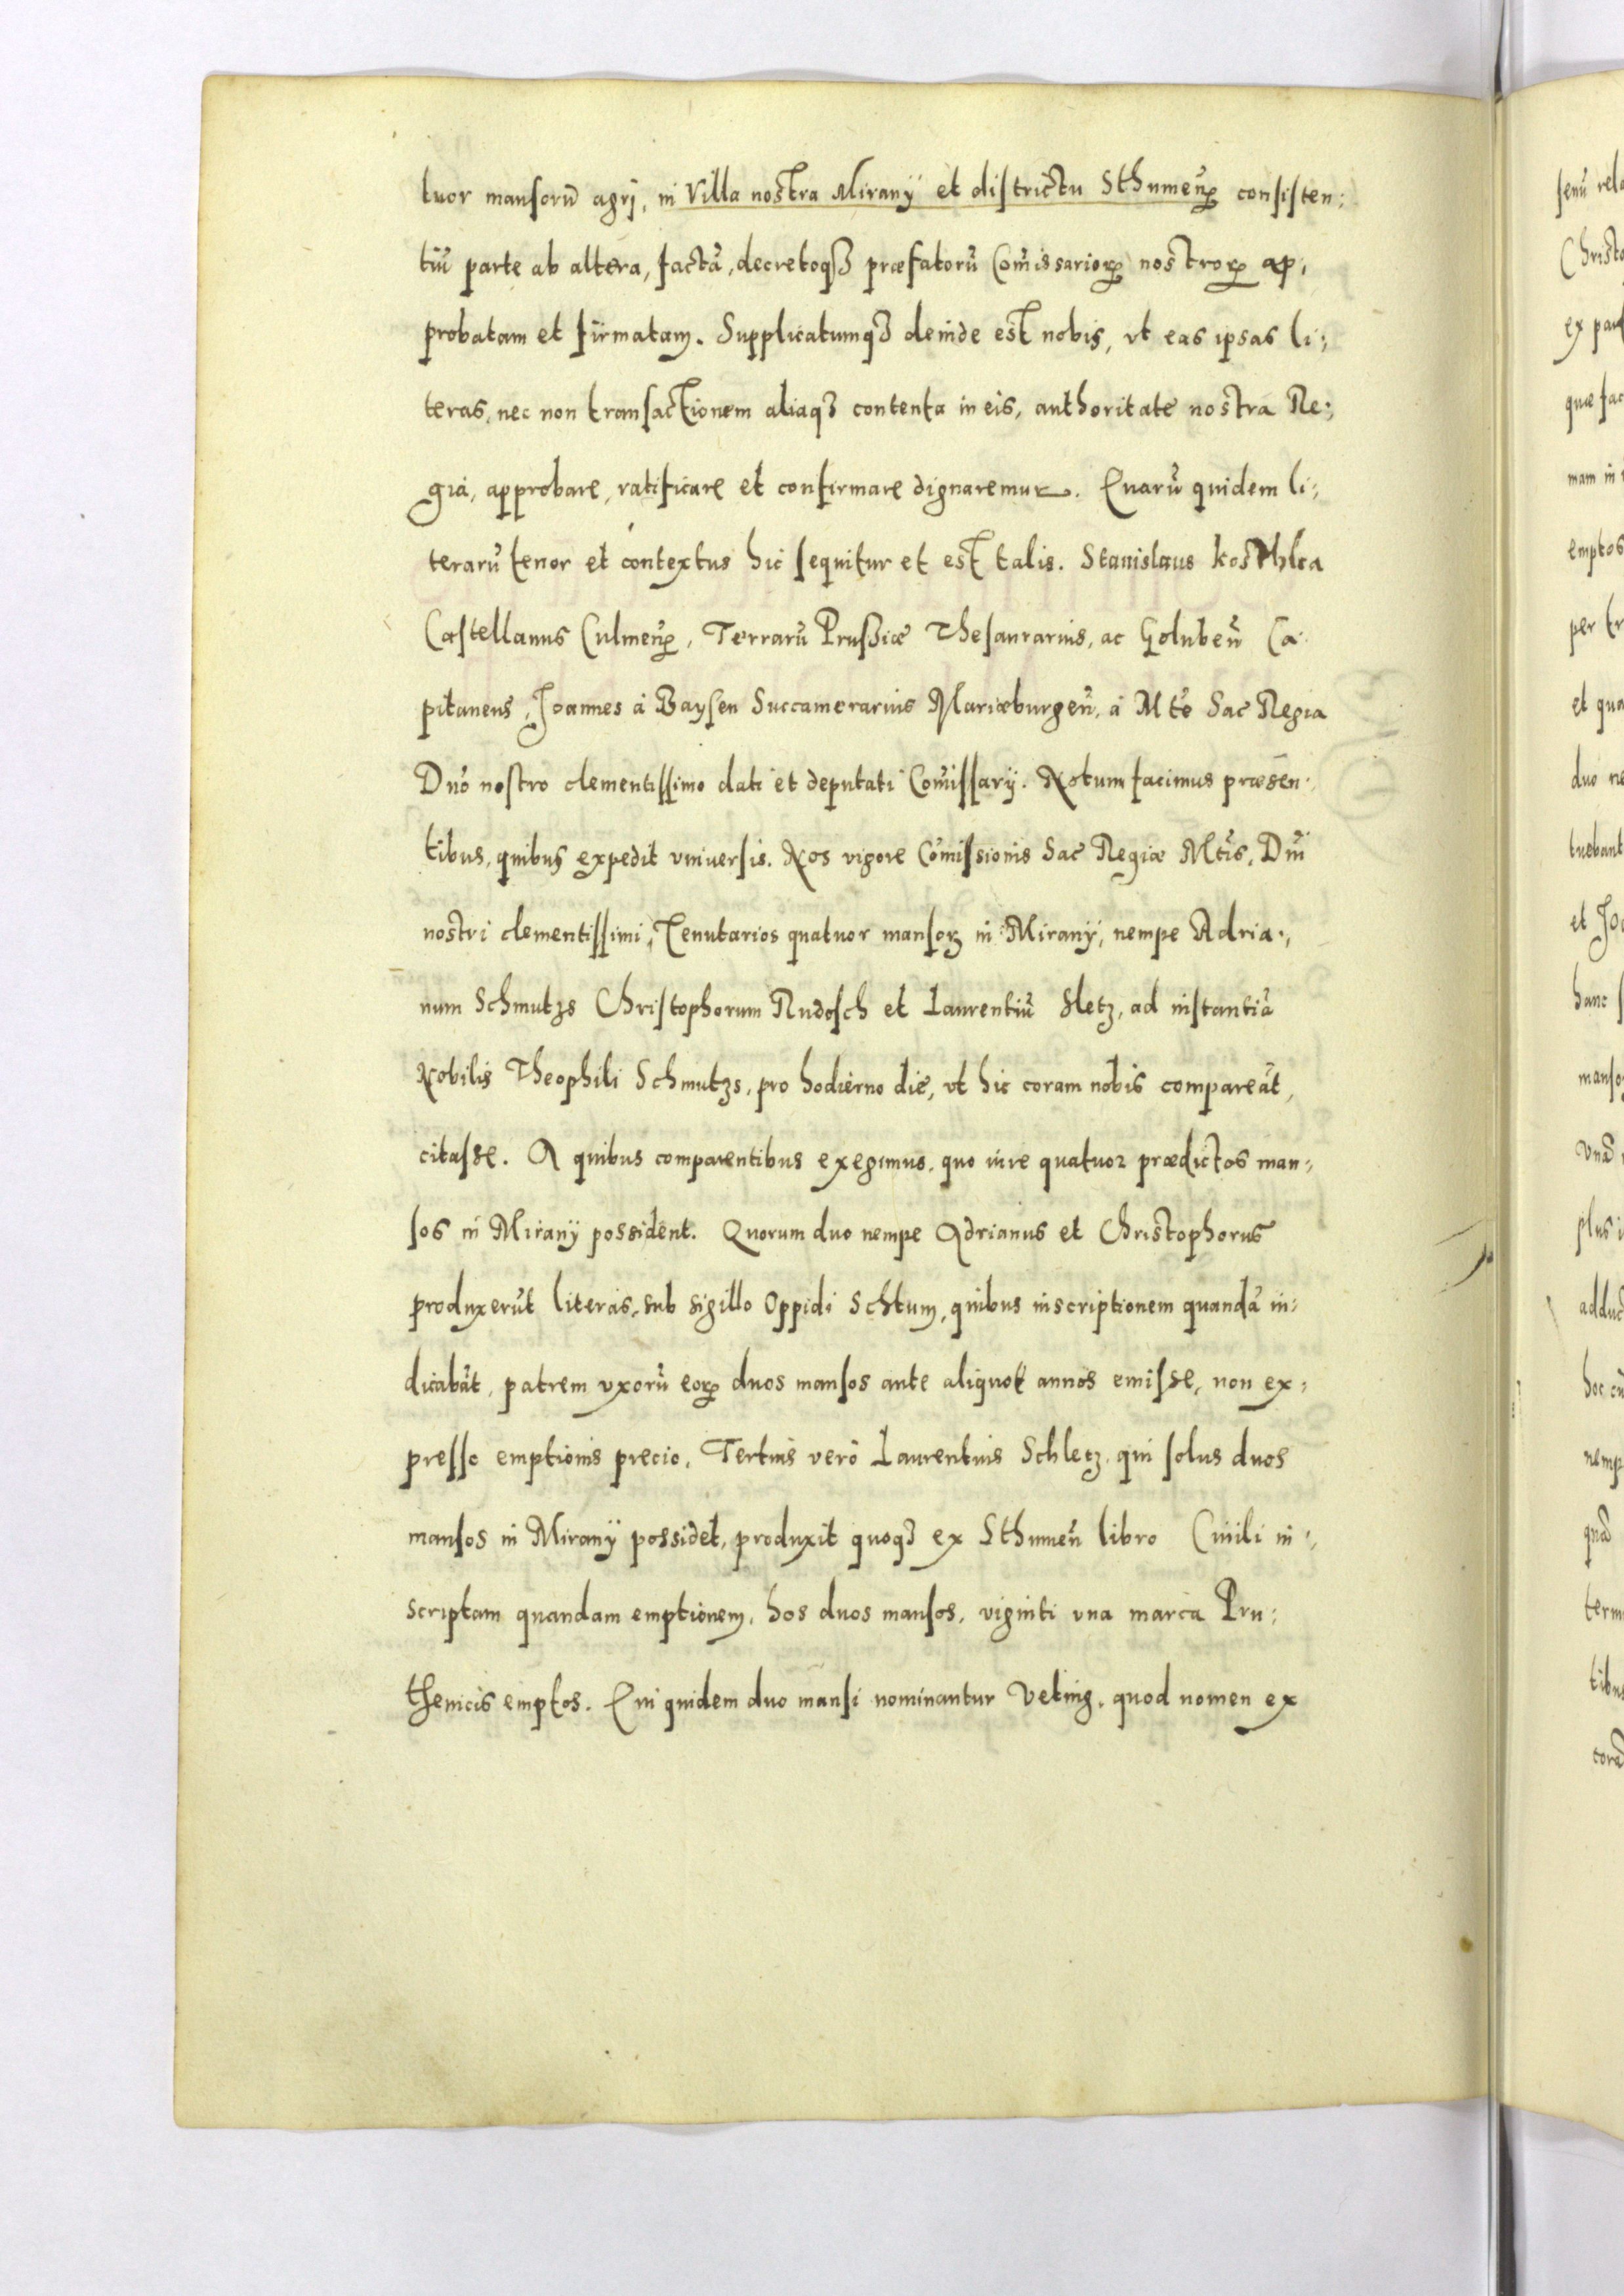 tuor mansorū agrj, in Villa nostra Mirany et districtu Sthumeñ consisten:
tiū parte ab altera, factā, decretoqȝ præfatorū Comissarioꝝ nostroꝝ ap:
probatam et firmatam. Supplicatumqȝ deinde est nobis, vt eas ipsas li:
teras, nec non transactionem aliaqȝ contenta in eis, authoritate nostra Re:
gia, approbare, ratificare et confirmare dignaremur. Quarū quidem li:
terarū tenor et contextus hic sequitur et est talis. Stanislaus Kosthka
Castellanus Culmeñ, Terrarū Prussiæ Thesaurarius, ac Golubeñ Ca
pitaneus, Joannes à Baysen Succamerarius Mariæburgeñ, à Mte Sac Regia
Dno nostro clementissimo dati et deputati Comissarij. Notum facimus præsen
tibus, quibus expedit vniuersis. Nos vigore Comissionis Sac Regiæ Mtis, Dni
nostri clementissimi, Tenutarios quatuor mansoꝝ in Mirany, nempe Adria:
num Schmutzs Christophorum Rudosch et Laurentiū Sletz, ad instantiā
Nobilis Theophili Schmutzs, pro hodierno die, vt hic coram nobis compareāt,
citasse. A quibus comparentibus exegimus, quo iure quatuor prædictos man:
sos in Mirany possident. Quorum duo nempe Adrianus et Christophorus
produxerūt literas, sub sigillo Oppidi Schtum, quibus inscriptionem quandā in:
dicabāt, patrem vxorū eoꝝ duos mansos ante aliquot annos emisse, non ex:
presso emptionis precio, Tertius verò Laurentius Schletz, qui solus duos
mansos in Mirany possidet, produxit quoqȝ ex Sthumeñ libro Ciuili in:
scriptam quandam emptionem, hos duos mansos, viginti vna marca Pru:
thenicis emptos. Qui quidem duo mansi nominantur Veting, quod nomen ex